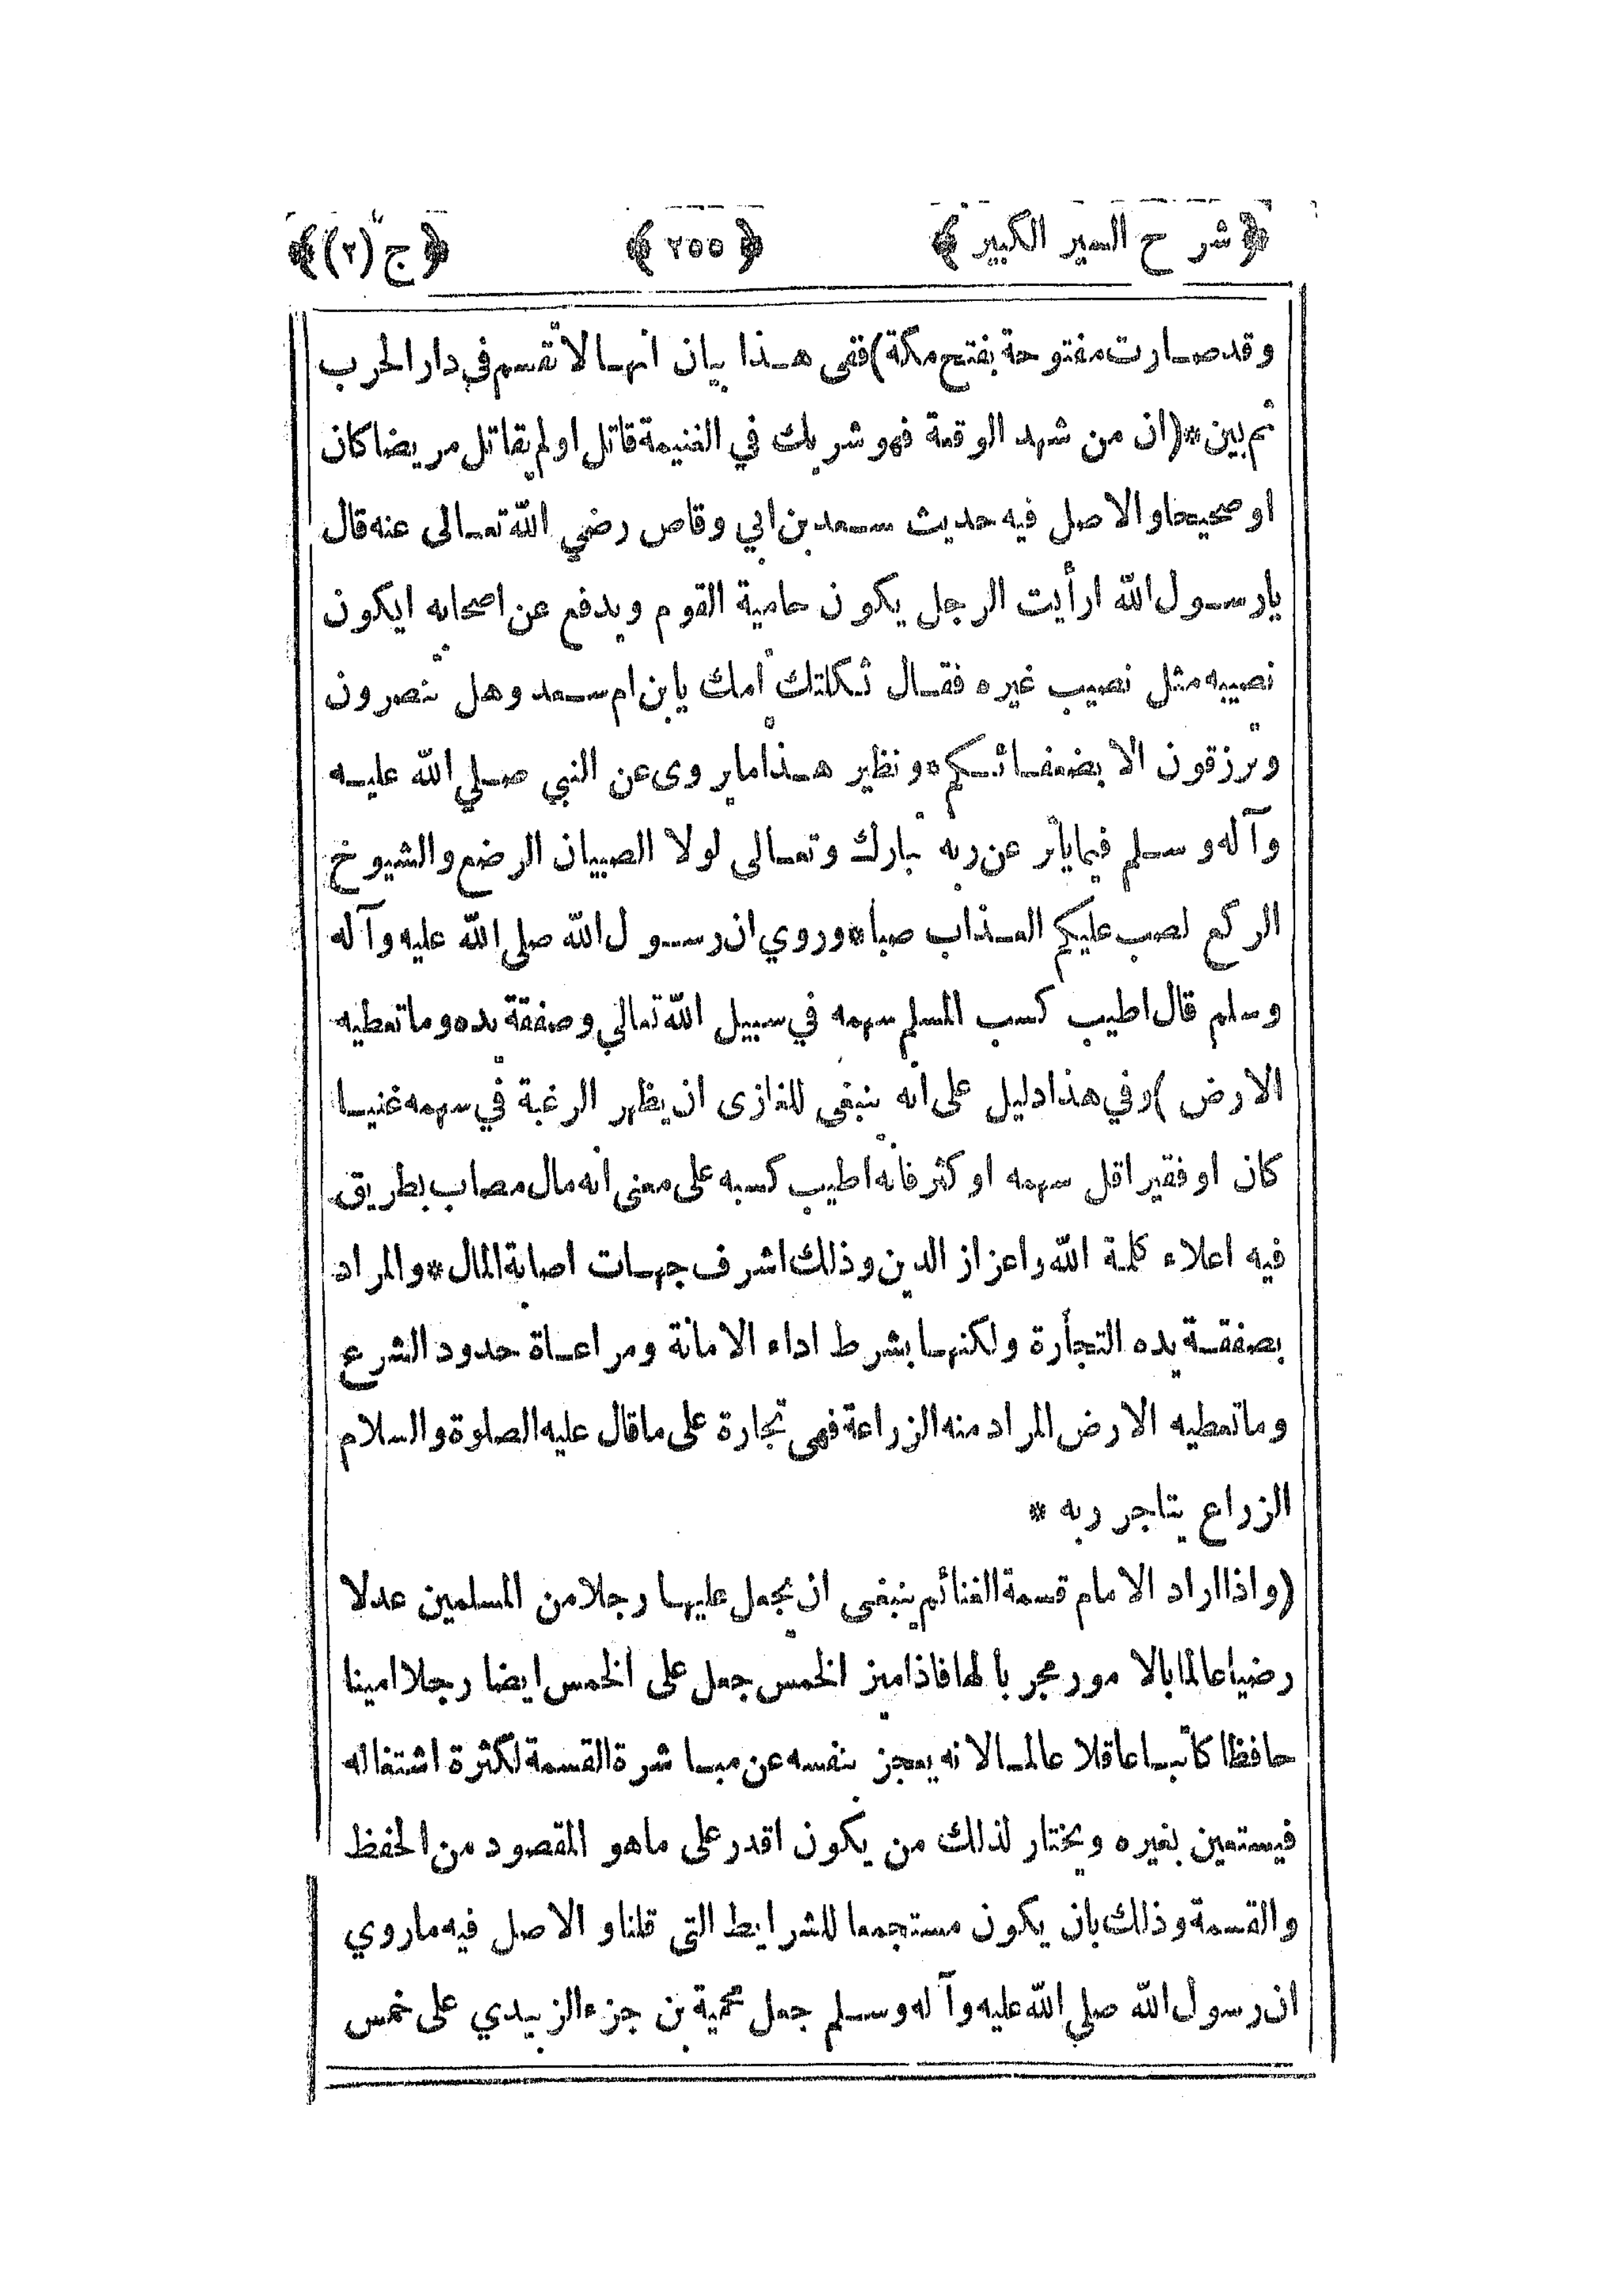 ﴿شرح السير الكبير﴾ ﴿٢٥٥﴾ ﴿ج (٢)﴾
وقد صارت مفتوحة بفتح مكة) ففي هذا بيان انها لا تقسم في دار الحرب
ثم بين * (ان من شهد الوقعة فهو شريك في الغنيمة قاتل او لم يقاتل مريضا كان
او صحيحا والاصل فيه حديث سعد بن ابي وقاص رضي الله تعالى عنه قال
يا رسول الله ارأيت الرجل يكون حامية القوم ويدفع عن اصحابه ايكون
نصيبه مثل نصيب غيره فقال ثكلتك امك يا بن ام سعد وهل تنصرون
وترزقون الا بضعفائكم * ونظير هذا ما يروى عن النبي صلي الله عليه
وآله وسلم فيما يأثر عن ربه تبارك وتعالى لولا الصبيان الرضع والشيوخ
الركع لصب عليكم العذاب صبا * وروي ان رسول الله صلى الله عليه وآله
وسلم قال اطيب كسب المسلم سهمه في سبيل الله تعالي وصفقة يده وما تعطيه
الارض) وفي هذا دليل على انه ينبغى للغازى ان يظهر الرغبة في سهمه غنيا
كان او فقيرا قل سهمه او كثر فانه اطيب كسبه على معنى انه مال مصاب بطريق
فيه اعلاء كلمة الله واعزاز الدين وذلك اشرف جهات اصابة المال * والمراد
بصفقة يده التجأرة ولكنها بشرط اداء الامانة ومراعاة حدود الشرع
وما تعطيه الارض المراد منه الزراعة فهى تجارة على ما قال عليه الصلوة والسلام
الزراع يتاجر ربه *
(واذا اراد الامام قسمة الغنائم ينبغى ان يجعل عليها رجلا من المسلمين عدلا
رضيا عالما بالامور مجربا لها فاذا ميز الخمس جعل على الخمس ايضا رجلا امينا
حافظا كاتبا عاقلا عالما لانه يعجز بنفسه عن مباشرة القسمة لكثرة اشتغاله
فيستعين بغيره ويختار لذلك من يكون اقدر على ما هو المقصود من الحفظ
والقسمة وذلك بان يكون مستجمعا للشرايط التى قلنا والاصل فيه ما روي
ان رسول الله صلي الله عليه وآله وسلم جعل محمية بن جزء الزبيدي على خمس